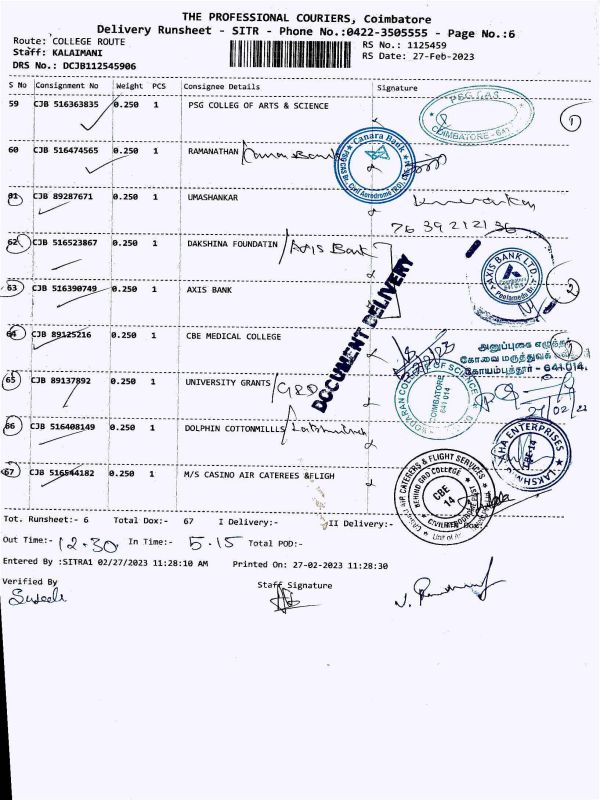 THE PROFESSIONAL COURIERS, Coimbatore
Delivery Runsheet - SITR - Phone No.:0422-3505555 - Page No.:6
Route: COLLEGE ROUTE
Staff: KALAIMANI
DRS No.: DCJB112545906
RS No.: 1125459
RS Date: 27-Feb-2023
S No Consignment No Weight PCS Consignee Details Signature
59 CJB 516363835 0.250 1 PSG COLLEG OF ARTS & SCIENCE
P.S.G.C.A.S.
COIMBATORE - 641
1
60 CJB 516474565 0.250 1 RAMANATHAN / Canara Bank
Canara Bank
Civil Aerodrome
61 CJB 89287671 0.250 1 UMASHANKAR
7639212136
62 CJB 516523867 0.250 1 DAKSHINA FOUNDATIN / Axis Bank
AXIS BANK LTD
Peelamedu Br.
63 CJB 516390749 0.250 1 AXIS BANK
2
DOCUMENT DELIVERY
64 CJB 89125216 0.250 1 CBE MEDICAL COLLEGE
அனுப்புகை எழுத்தர்
கோவை மருத்துவக்
கோயம்புத்தூர் - 641 014.
65 CJB 89137892 0.250 1 UNIVERSITY GRANTS / GRD
COLLEGE OF SCIENCE
COIMBATORE
641 014
66 CJB 516408149 0.250 1 DOLPHIN COTTONMILLLS /
ENTERPRISES
CBE-14
LAKSHMI
67 CJB 516544182 0.250 1 M/S CASINO AIR CATEREES &FLIGH
AIR CATERERS & FLIGHT SERVICES
BEHIND GRD COLLEGE
CBE
14
Tot. Runsheet:- 6 Total Dox:- 67 I Delivery:- II Delivery:-
Out Time:- 12.30 In Time:- 5.15 Total POD:-
Entered By :SITRA1 02/27/2023 11:28:10 AM Printed On: 27-02-2023 11:28:30
Verified By Staff Signature